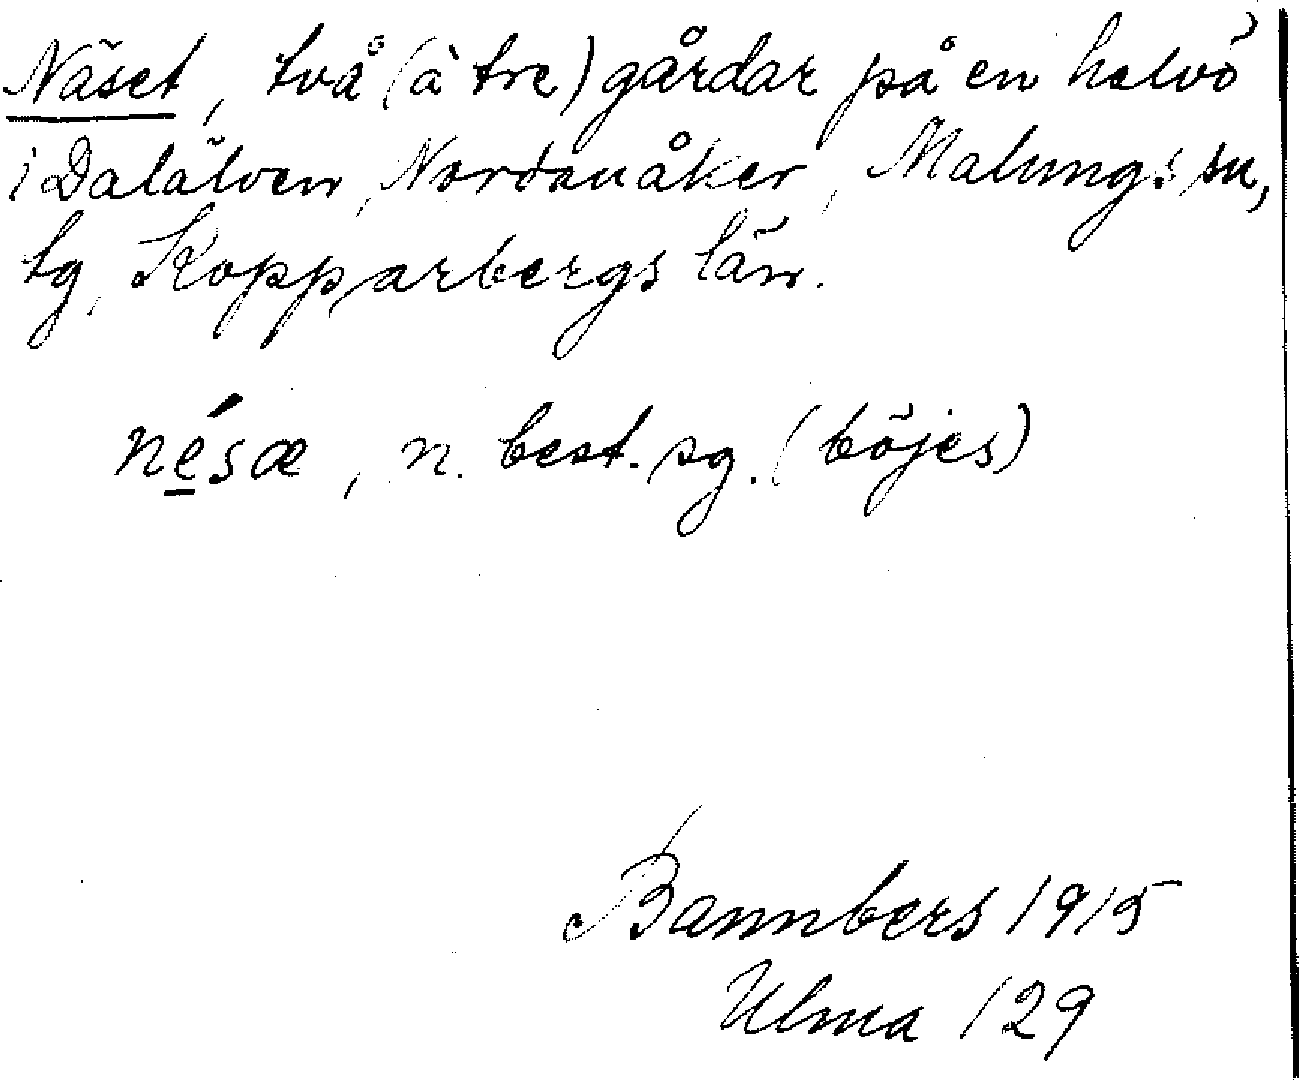 Näset, två (à tre) gårdar på en halvö
i Dalälven, Nordanåker, Malungs sn,
tg, Kopparbergs län.
nésæ, n. best. sg. (böjes)
Bannbers 1915
Ulma 129